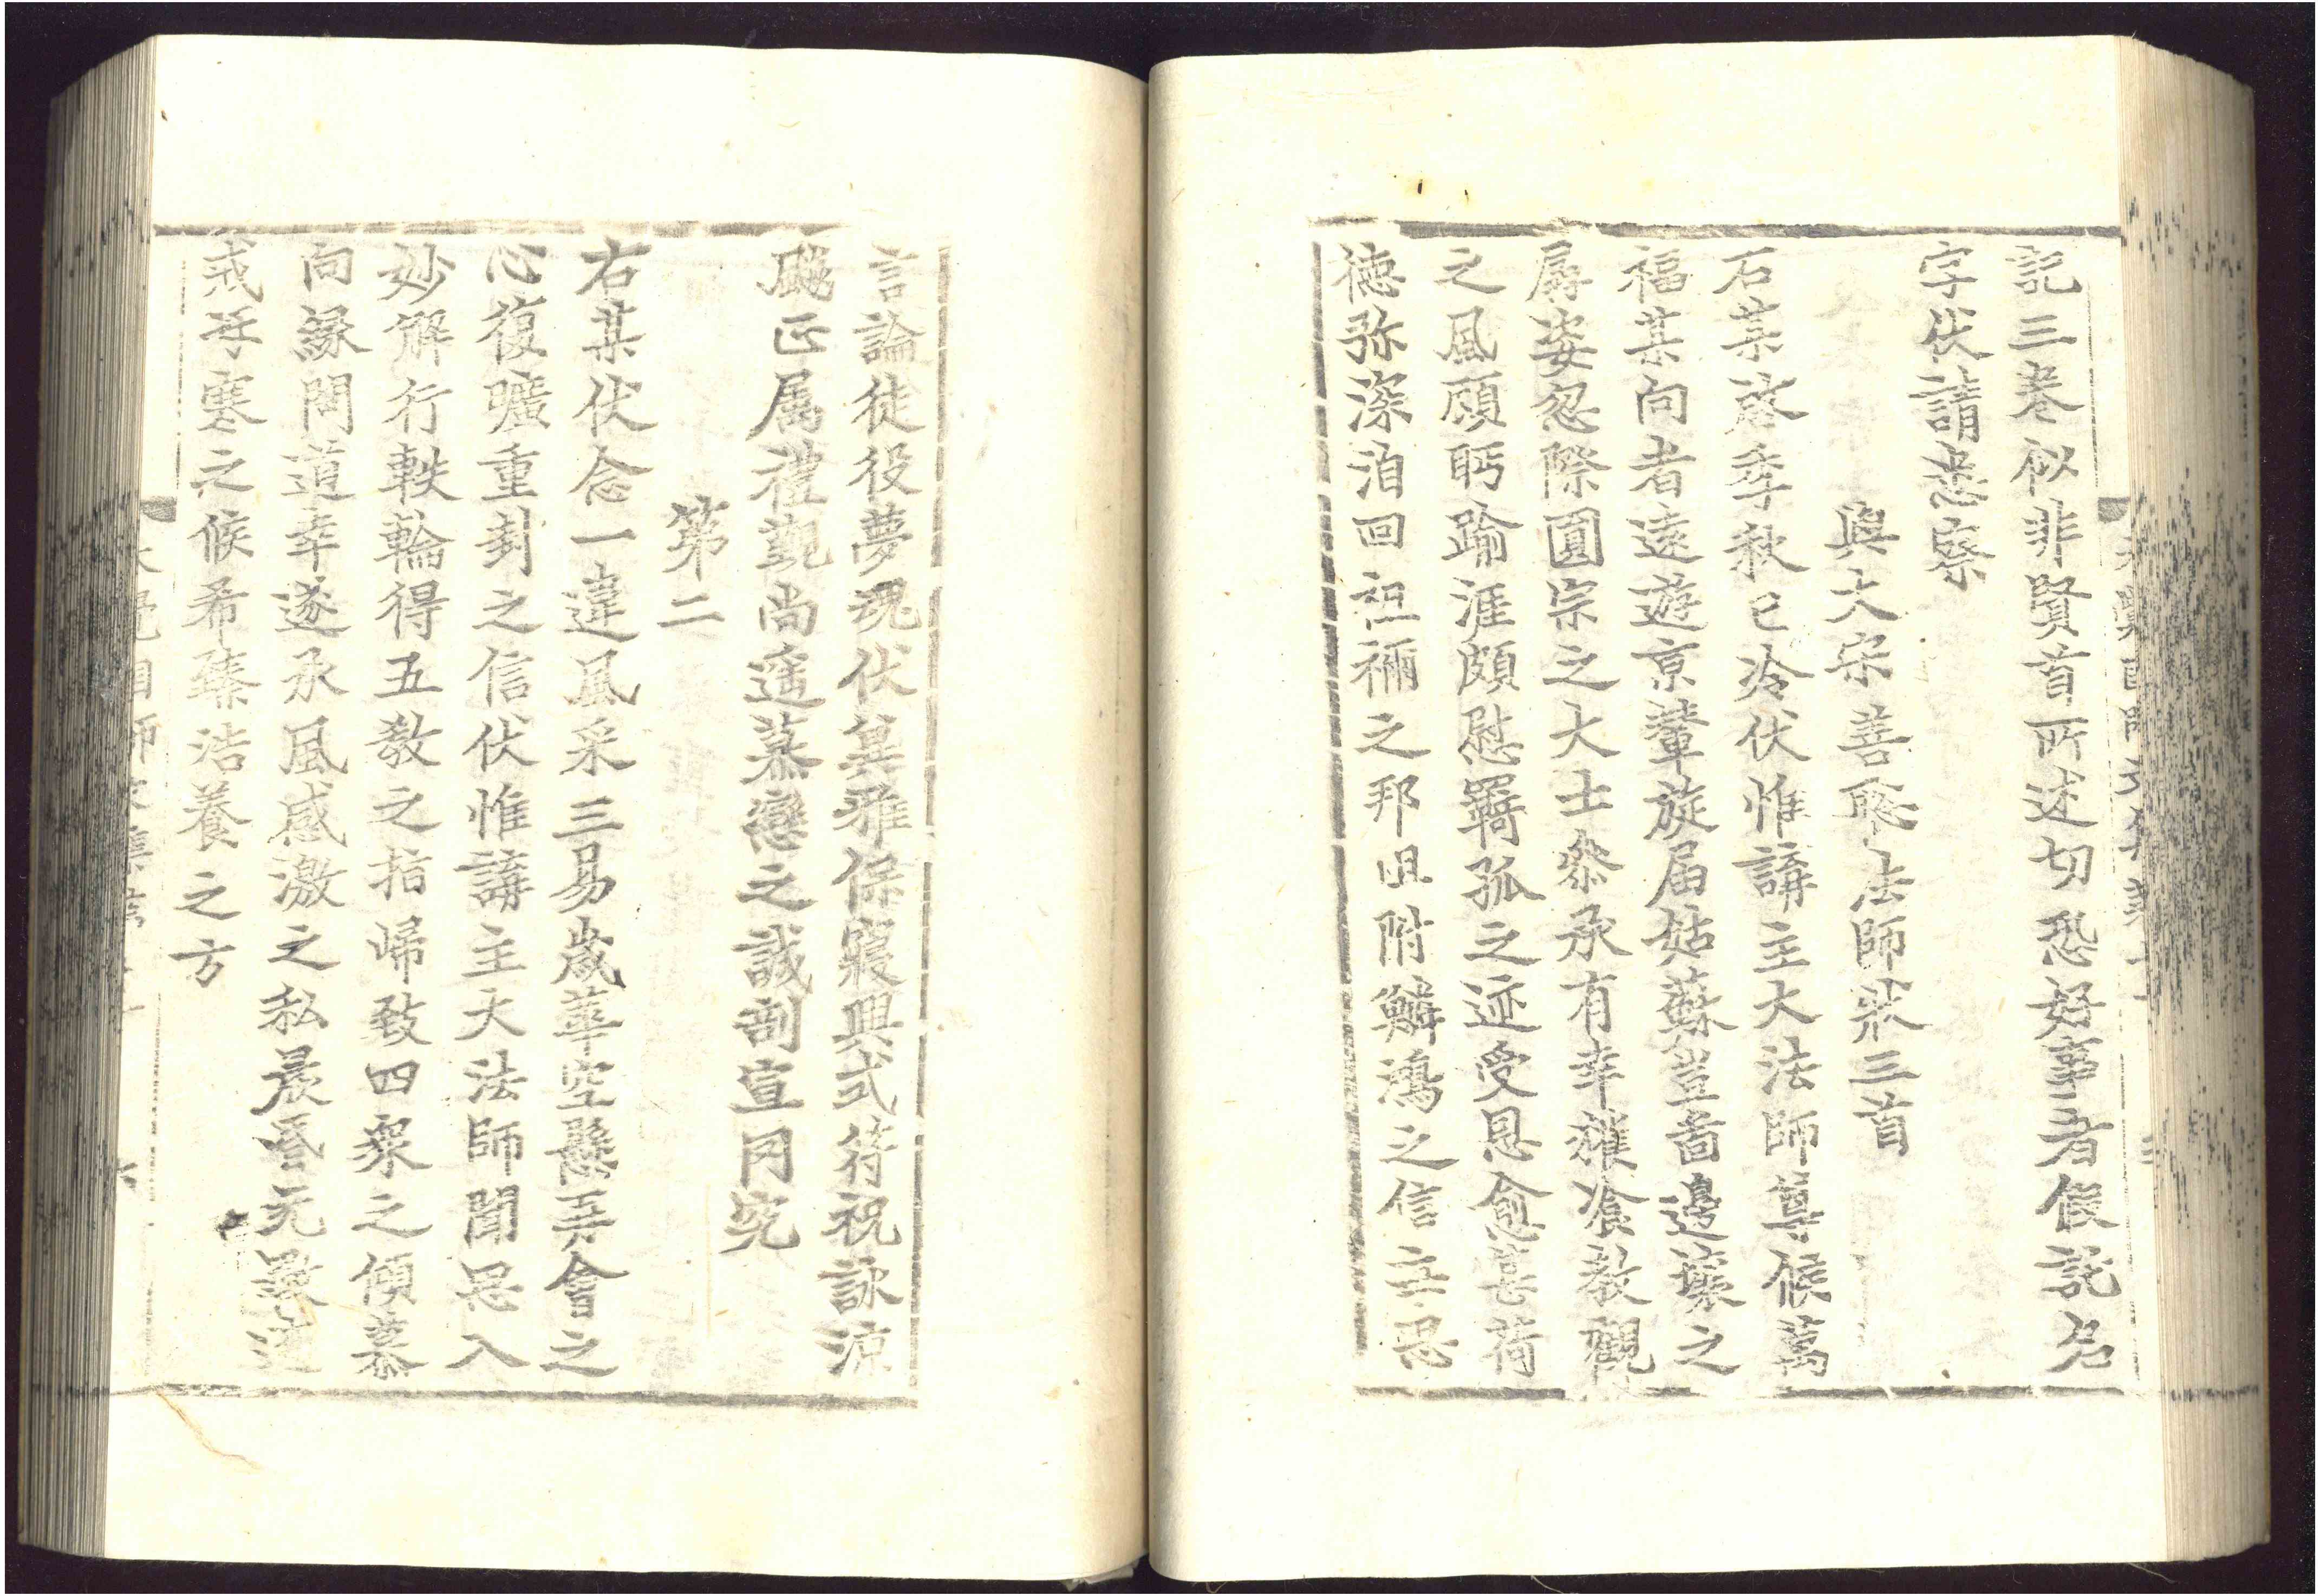 記三卷似非賢首所述切恐好事者假託名
字伏請悉察
與大宋善聡法師狀三首
右某啓季秋已冷伏惟講主大法師尊候萬
福某向者遠遊京輦旋届姑蘇豈啚邊壤之
孱姿忽際圓宗之大士叅承有幸獲飡教觀
之風顧眄踰涯頗慰羇孤之迹受恩愈甚荷
德弥深洎回祖祢之邦且附鱗鴻之信主恩
言論徒役夢魂伏冀雅保寢興式符祝詠涼
飈正属禮覿尚遥慕戀之誠剬宣罔究
第二
右某伏念一違風采三易歲華空懸再會之
心復曠重封之信伏惟講主大法師聞思入
妙解行軼輪得五教之指歸致四衆之傾慕
向緣問道幸遂承風感激之私晨昏无
戒冱寒之候希臻浩養之方